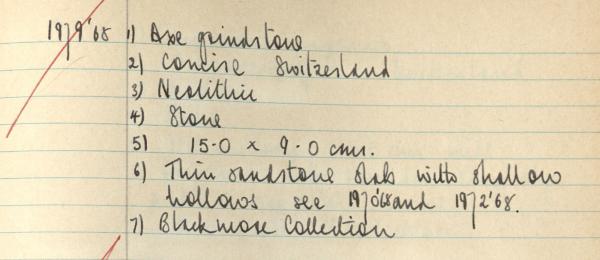 1979'68 1) Axe grindstone
2) Concise Switzerland
3) Neolithic
4) Stone
5) 15.0 x 9.0 cms.
6) Thin sandstone slab with shallow
hollows see 1970'68 and 1972'68.
7) Blackmore Collection